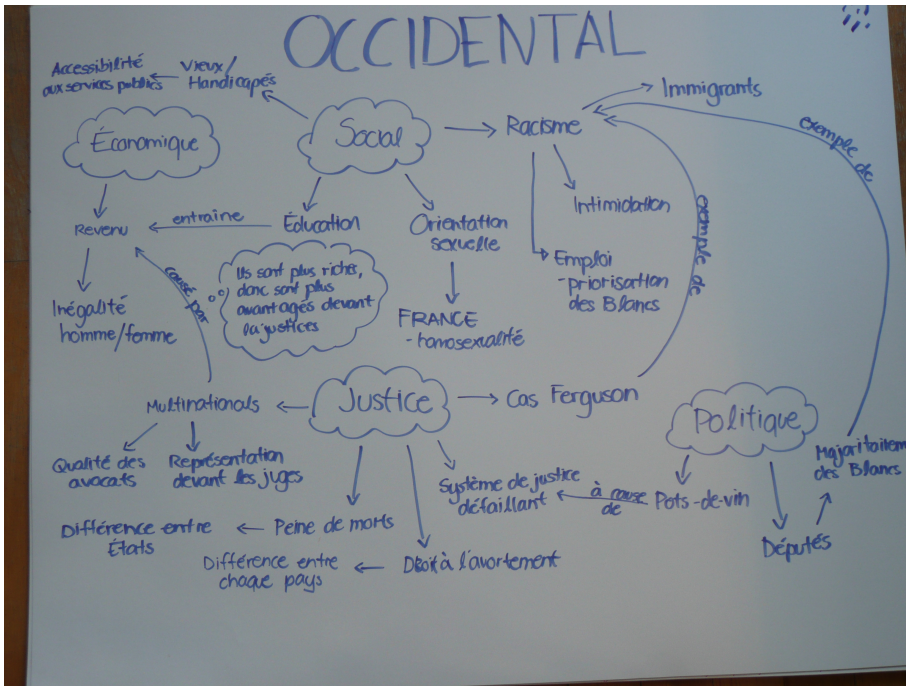 OCCIDENTAL
Accessibilité
aux services publics
Vieux/
Handicapés
Économique
Social
Racisme
Immigrants
exemple de
Revenu
entraîne
Éducation
Orientation
sexuelle
Intimidation
exemple de
Emploi
-priorisation
des Blancs
Inégalité
homme/femme
causé par
Ils sont plus riches,
donc sont plus
avantagés devant
la justices
FRANCE
- homosexualité
Multinationals
Justice
Cas Ferguson
Politique
Qualité des
avocats
Représentation
devant les juges
Système de justice
défaillant
à cause
de
Pots-de-vin
Majoritairement
des Blancs
Députés
Différence entre
États
Peine de morts
Différence entre
chaque pays
Droit à l'avortement